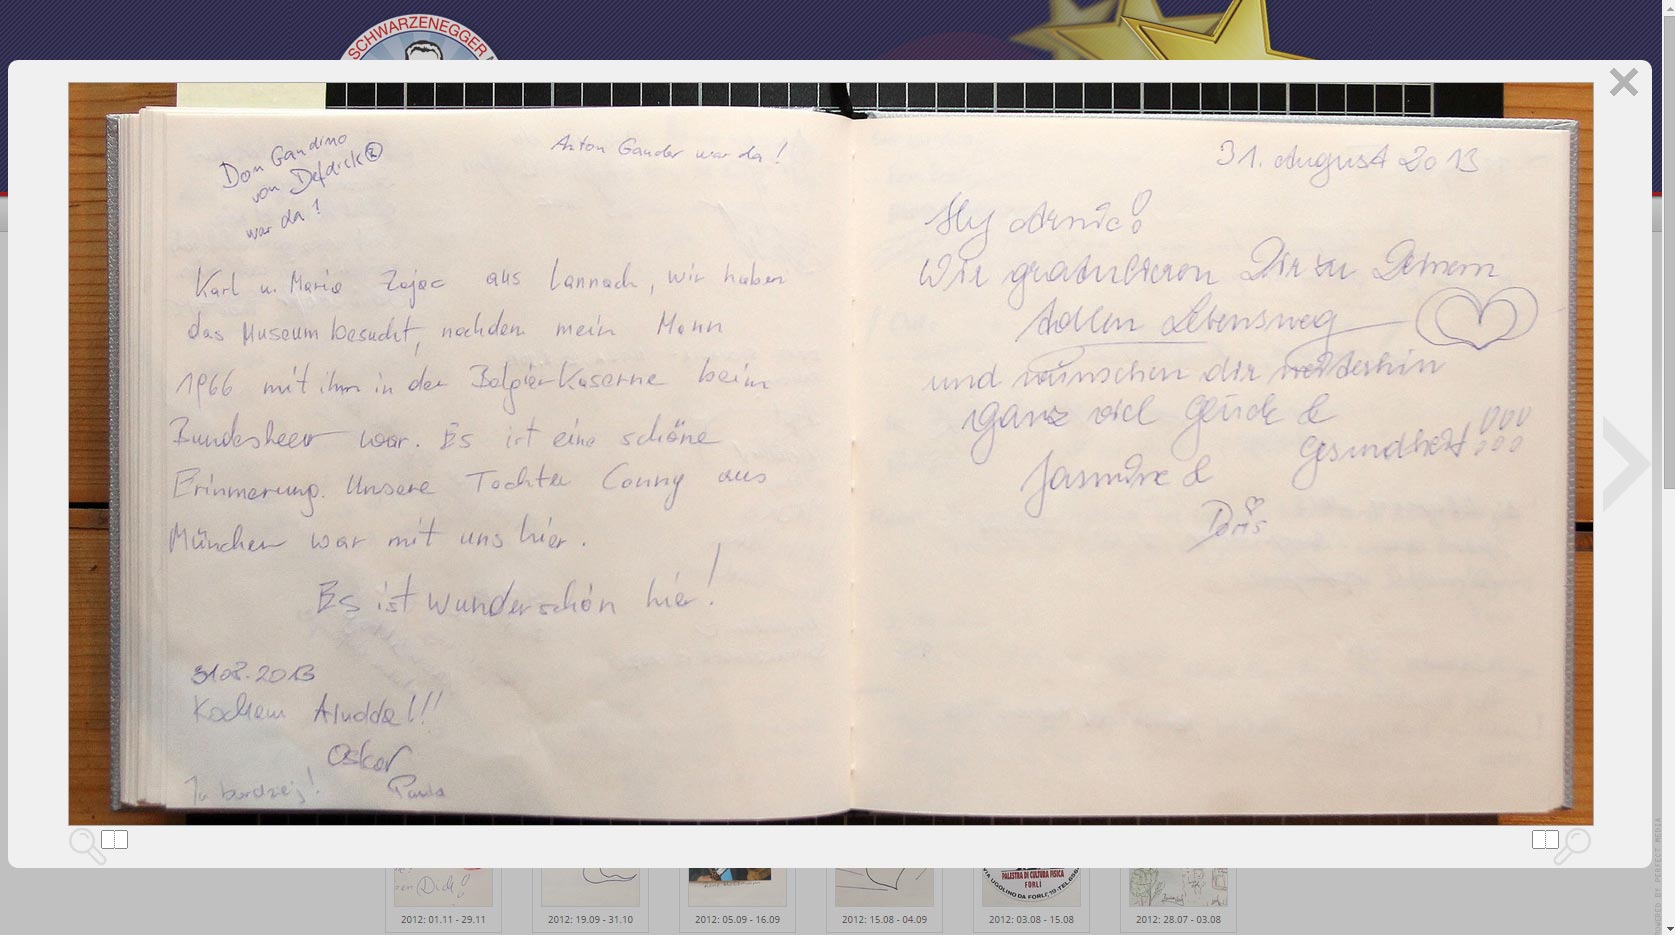 SCHWARZENEGGER
Don Gandino
von
war da!
Anton Gander war da!
Karl u. Maria Zajac aus Lannach, wir haben
das Museum besucht, nachdem mein Mann
1966 mit ihm in der Belgier Kaserne beim
Bundesheer war. Es ist eine schöne
Erinnerung. Unsere Tochter Conny aus
München war mit uns hier.
Es ist wunderschön hier!
31.08.2013
Kocham
Oskar
Ja bardziej!
Paula
31. August 2013
Hey Arnie!
Wir gratulieren Dir zu Deinem
tollen Lebensweg
und wünschen dir weiterhin
ganz viel Glück &
Gesundheit!!!
Jasmine &
Doris
Dich!
PALESTRA DI CULTURA FISICA
FORLI
VIA UGOLINO DA FORLI, 19
2012: 01.11 - 29.11
2012: 19.09 - 31.10
2012: 05.09 - 16.09
2012: 15.08 - 04.09
2012: 03.08 - 15.08
2012: 28.07 - 03.08
POWERED BY PERFECT MEDIA